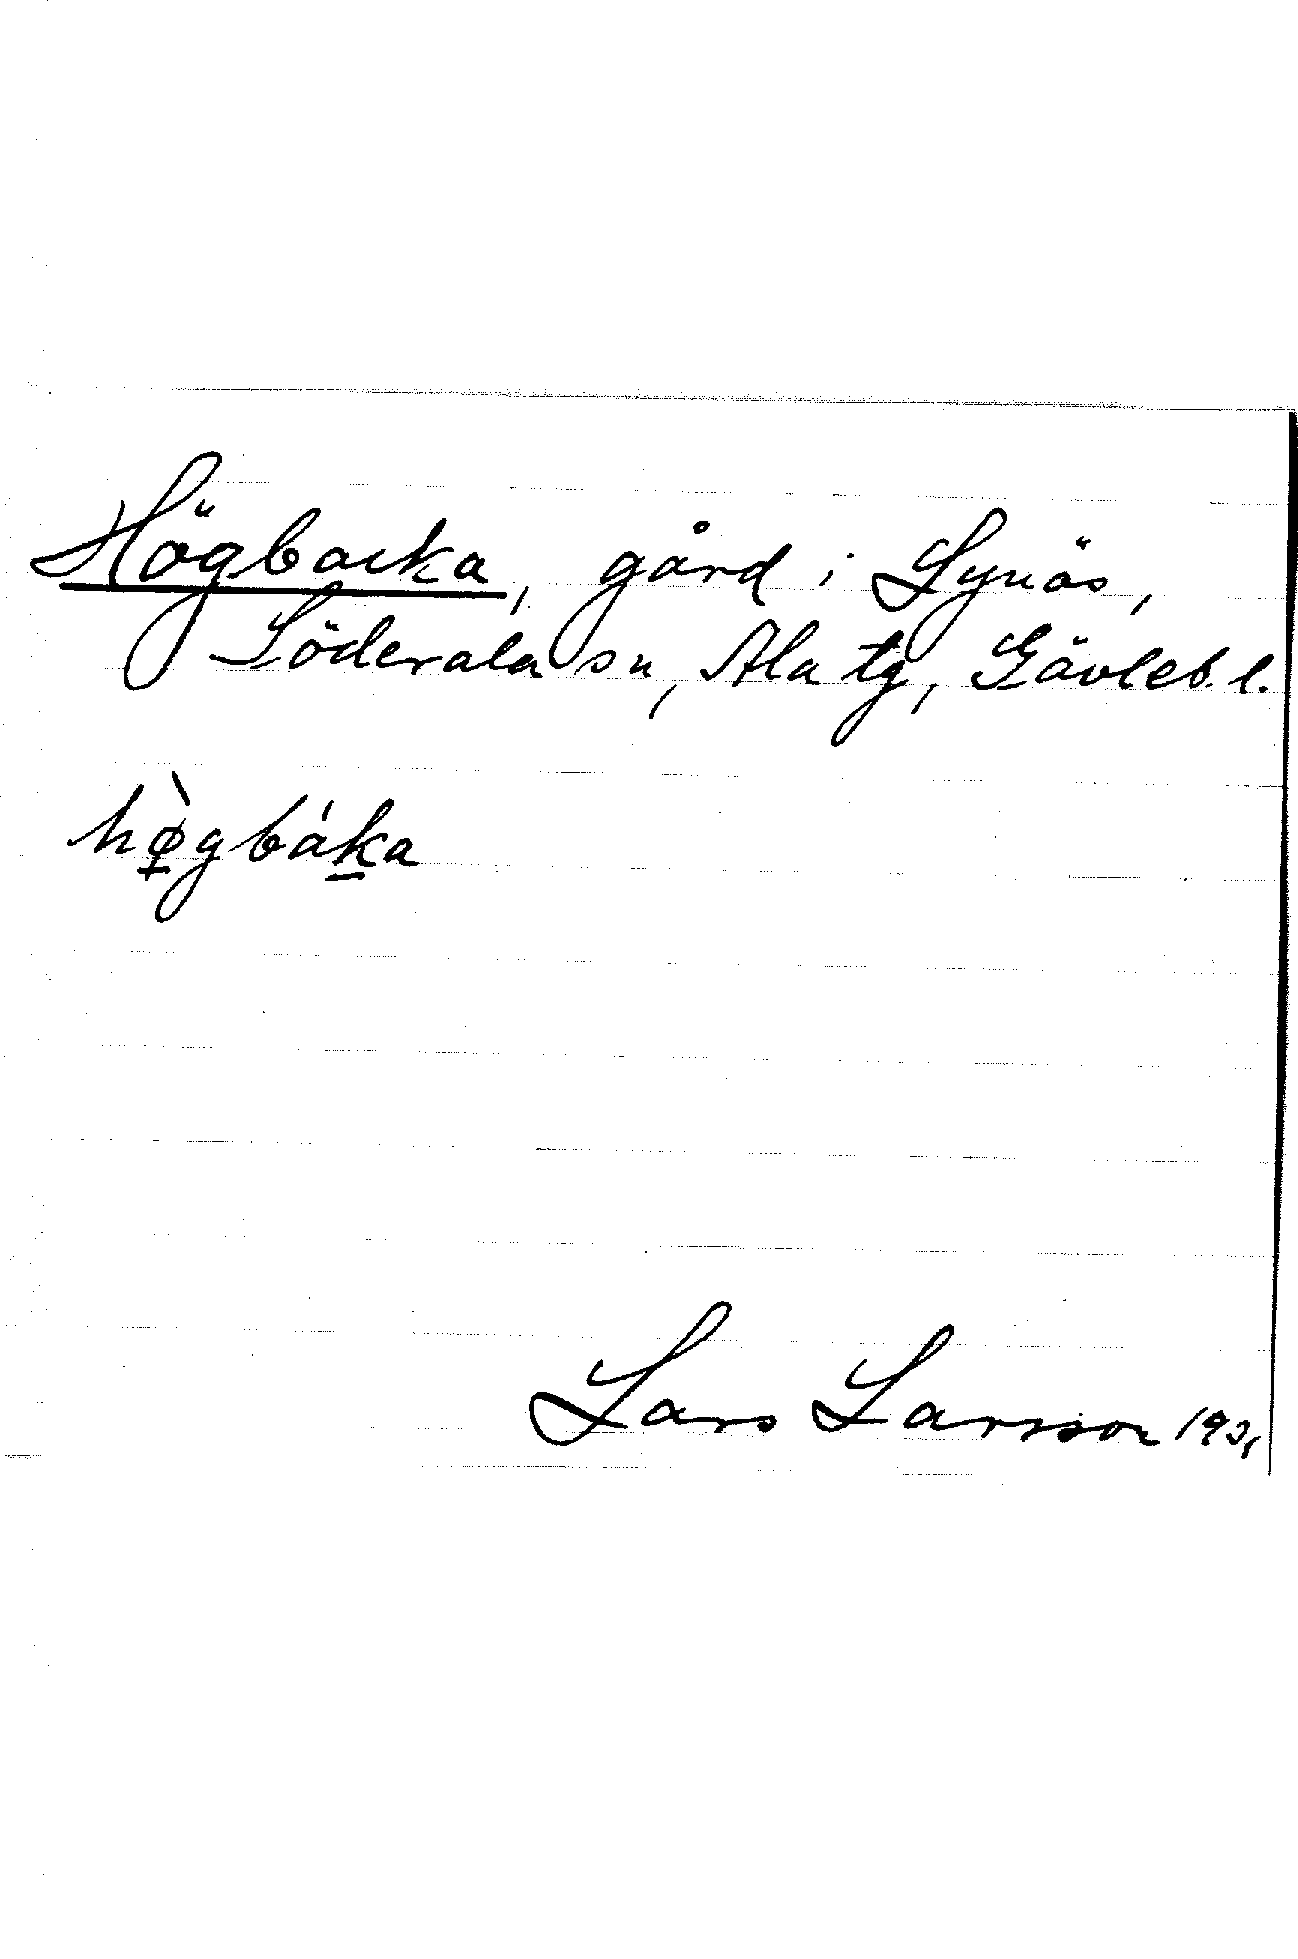 Högbacka, gård i Lynäs,
Söderala sn, Ala tg, Gävleb. l.
hø̀gbáka
Lars Larsson